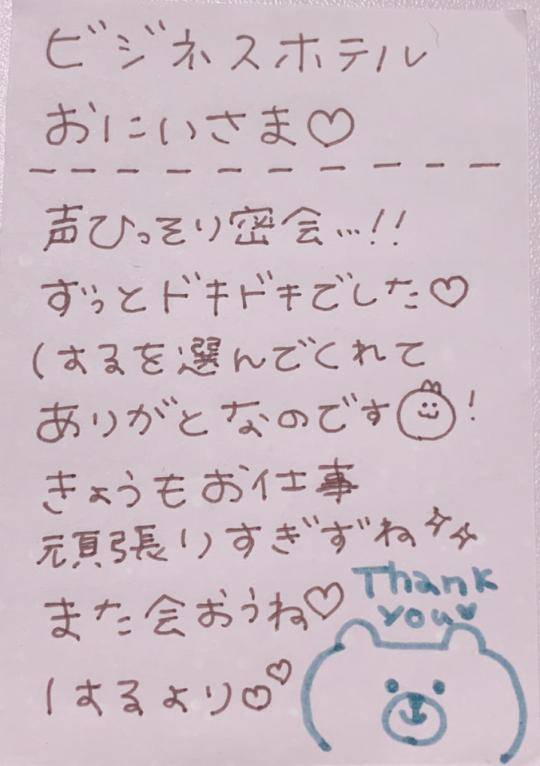 ビジネスホテル
おにいさま♡
声ひっそり密会…!!
ずっとドキドキでした♡
はるを選んでくれて
ありがとなのです!
きょうもお仕事
頑張りすぎずね
また会おうね♡
はるより♡♡
Thank
you♥